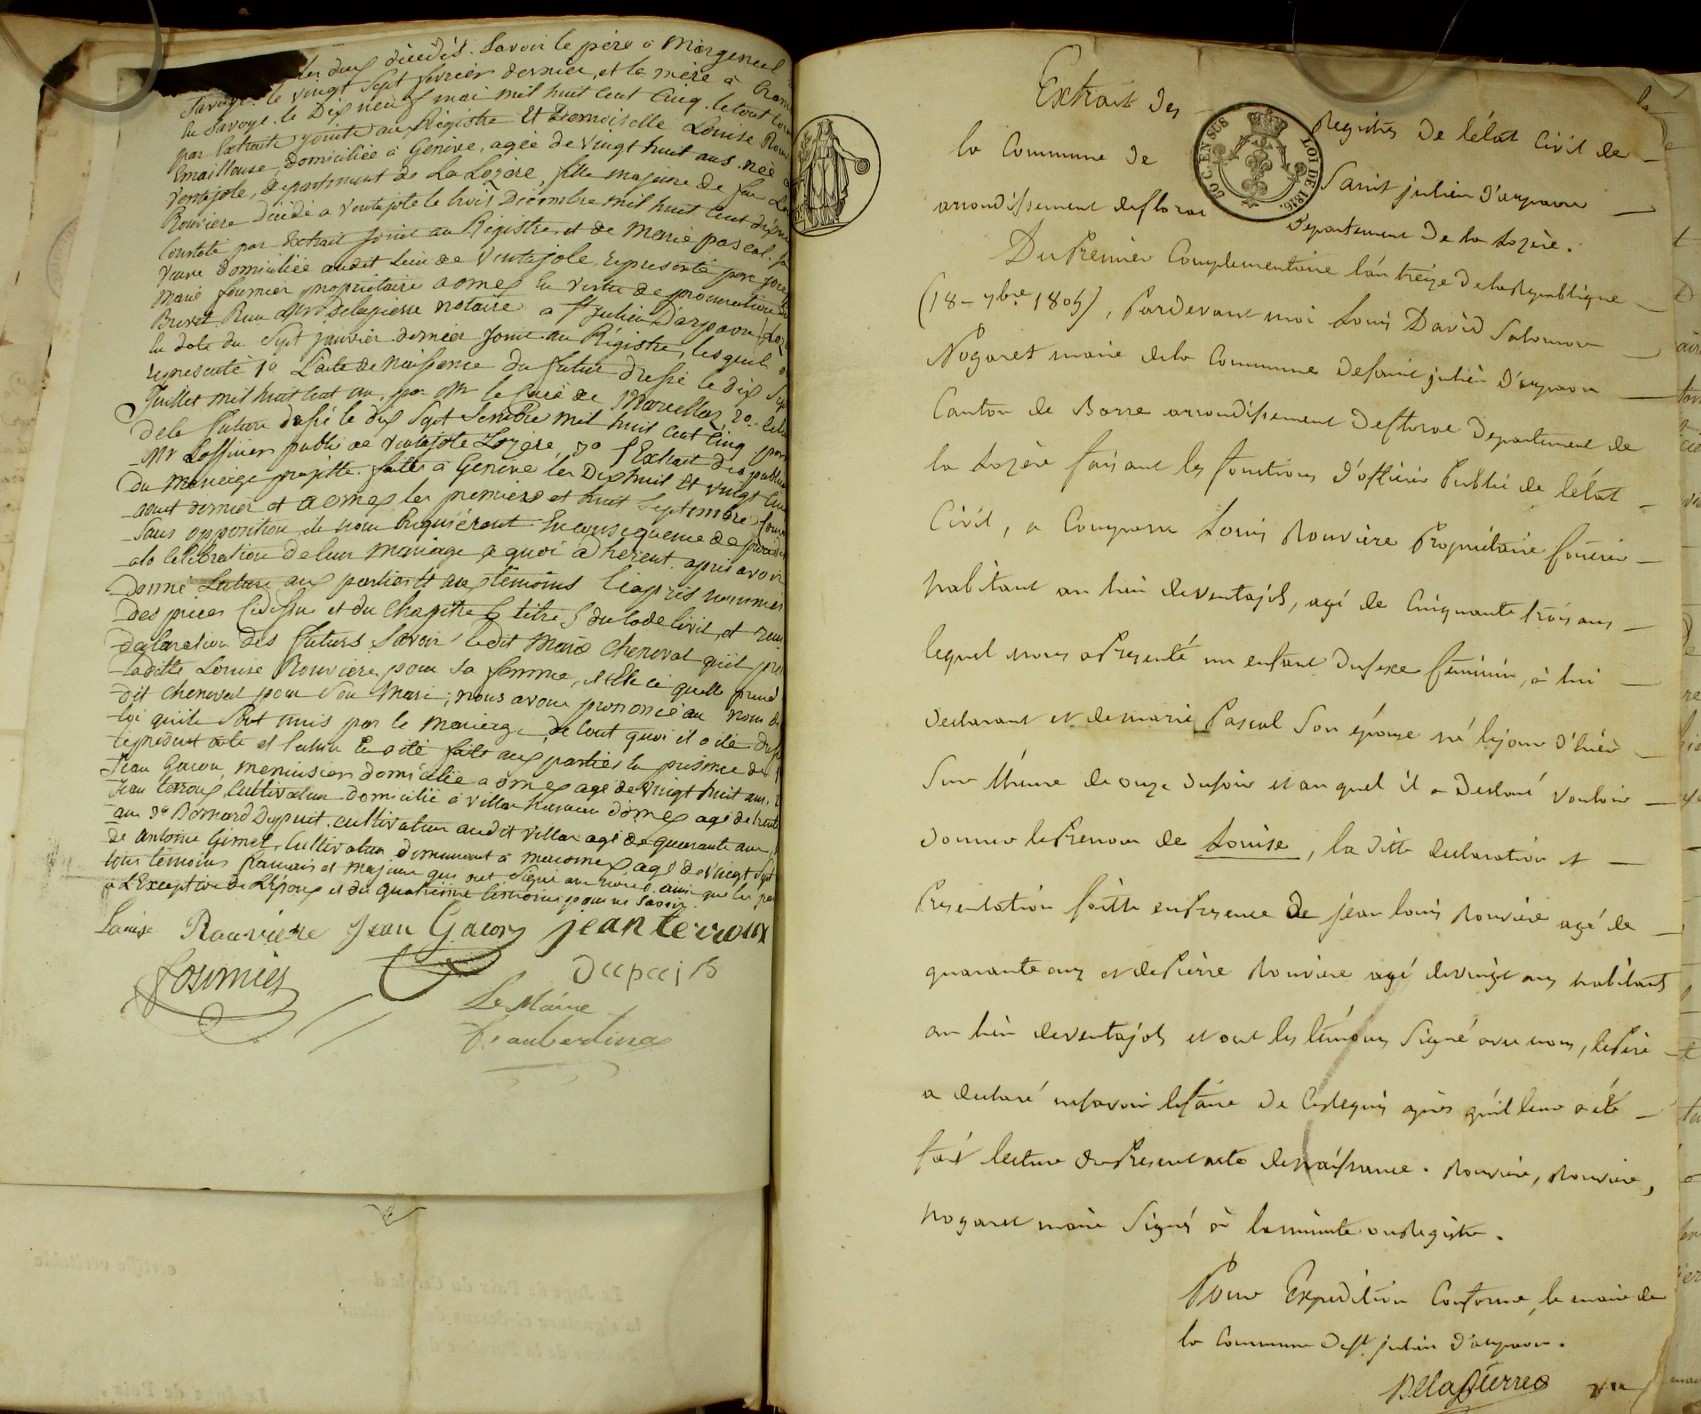 les deux décédés. Savoir le père à Margencel
Savoye le vingt sept février dernier, et la mère à
en Savoye le Dix neuf mai mil huit cent cinq. le tout
par Extraits joints au Régistre Et Demoiselle Louise
Emailleuse, domiciliée à Genève, agée de vingt huit ans née
Ventajole, Departement de La Lozère, fille majeure de feu
Rouvière décédé a Ventajole le huit Décembre mil huit cent
Constaté par Extrait Joint au Régistre et de Marie pascal. sa
Veuve domiciliée audit lieu de Ventajole, représentée par
Marie fournier propriétaire a ornex en vertu de procuration
Brevet Reçu Mr Delapierre notaire a St Julien D'arpaon
la date du Sept janvier dernier Joint au Régistre, lesquels
représenté 1o L'acte de Naissance du futur Dressé le dix
Juillet mil huit cent un, par Mr le Curé de 2o celui
De la future dressé le dix Sept Septembre mil huit cent Cinq par
Mr L'officier public de Ventajole Lozère, 3o l'Extrait des
du Mariage projetté. faites à Genève les Dix huit Et vingt
aout dernier et a ornex les premiere et huit Septembre
Sans opposition, ils nous Requièrent En conséquence de
a la célébration de leur Mariage a quoi adhérent. après avoir
Donné Lecture aux parties et aux témoins ci après nommés
Des pièces ci dessus et du Chapitre 6 titre 5 du Code Civil, et
declaration des futurs Savoir ledit Marie Chenevat qu'il
laditte Louise Rouvière pour sa femme, et Elle ci quelle prend
dit Chenevat pour Son Mari; nous avons prononcé au nom de
loi qu'ils Sont unis par le Mariage de tout quoi il a été
le présent acte et lecture En a été faite aux parties En présence de
Jean Gacon menuisier domicilié a ornex agé de vingt huit ans.
Jean Cultivateur domicilié à Villar hameau d'ornex agé de
ans 3o Bernard Dupuit. cultivateur audit Villar agé de quarante ans
de antoine Gimel, Cultivateur, Demeurant à agé de vingt
tous témoins français et majeurs qui ont Signé avec nous. ainsi que les
à L'Exception de L'époux et du quatrième témoins pour ne Savoir.
Louise Rouvière Jean Gacon jean terroux
fournier
Dupuits
Le Maire
Extrait Des Registres De l'état Civil de
la Commune De Saint julien d'arpaon
arrondissement de florac Departement De la Lozère.
100 C. EN SUS
LOI DE 1816.
Du Premier Complementaire l'an treize de la Republique
(18 – 7bre 1805), Pardevant moi Louis David Salomon
Nogaret maire de la Commune de saint julien d'arpaon
Canton de Barre arrondissement De florac Departement de
la Lozère faisant les fonctions d'officier Public de l'état
Civil, a Comparu Louis Rouvière Propriétaire foncier
habitant au lieu de ventajols, agé de Cinquante trois ans
lequel nous a Presenté un enfant du sexe féminin, à lui
declarant et de marie Pascal Son épouse né le jour d'hier
Sur l'heure de onze du soir et au quel il a Declaré vouloir
donner le Prenom de Louise, la ditte declaration et
Presentation faitte en Presence de jean louis Rouvière agé de
quarante ans et de Pierre Rouvière agé de vingt ans habitants
au lieu de ventajols et ont les témoins Signé avec nous, le Père
a declaré ne savoir le faire De Ce Requis après qu'il leur a été
fait lecture du Present acte de naissance. Rouvière, Rouvière,
nogaret maire Signés à la minute ou Registre.
Pour Expedition Conforme, le maire de
la Commune de St julien d'arpaon.
Delapierre